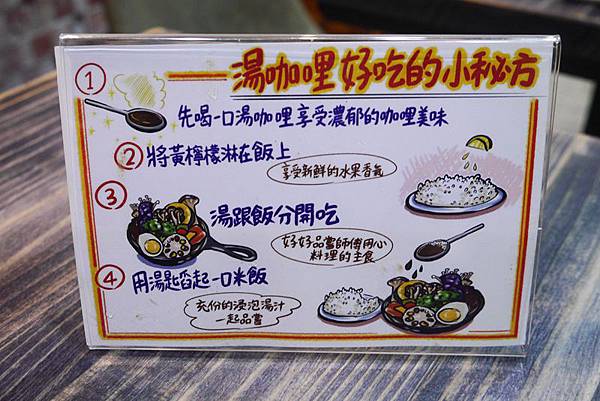 湯咖哩好吃的小秘方
① 先喝一口湯咖哩享受濃郁的咖哩美味
② 將黃檸檬淋在飯上
享受新鮮的水果香氣
③ 湯跟飯分開吃
好好品嘗師傅用心
料理的主食
④ 用湯匙舀起一口米飯
充份的浸泡湯汁
一起品嘗